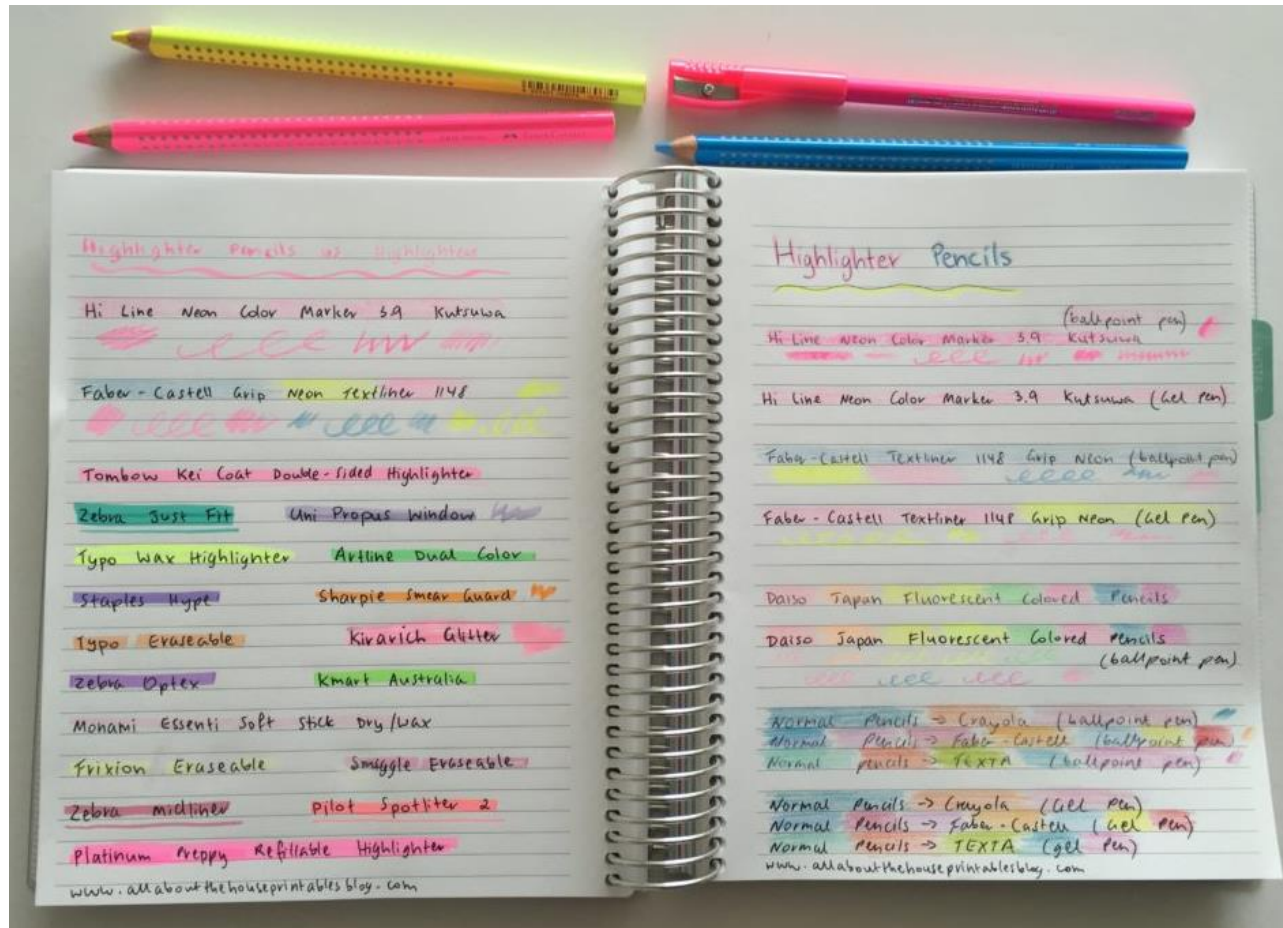 Highlighter Pencils vs Highlighters
Hi Line Neon Color Marker 3.9 Kutsuwa
Faber-Castell Grip Neon Textliner 1148
Tombow Kei Coat Double-sided Highlighter
Zebra Just Fit
Uni Propus Window
Typo Wax Highlighter
Artline Dual Color
Staples Hype
Sharpie Smear Guard
Typo Eraseable
Kirarich Glitter
Zebra Optex
Kmart Australia
Monami Essenti Soft Stick Dry/Wax
Frixion Eraseable
Smiggle Eraseable
Zebra Midliner
Pilot Spotliter 2
Platinum Preppy Refillable Highlighter
www.allaboutthehouseprintablesblog.com
Highlighter Pencils
(ballpoint pen)
Hi Line Neon Color Marker 3.9 Kutsuwa
Hi Line Neon Color Marker 3.9 Kutsuwa (Gel Pen)
Faber-Castell Textliner 1148 Grip Neon (ballpoint pen)
Faber-Castell Textliner 1148 Grip Neon (Gel Pen)
Daiso Japan Fluorescent Colored Pencils
Daiso Japan Fluorescent Colored Pencils
(ballpoint pen)
Normal Pencils → Crayola (ballpoint pen)
Normal Pencils → Faber-Castell (ballpoint pen)
Normal pencils → TEXTA (ballpoint pen)
Normal Pencils → Crayola (Gel Pen)
Normal Pencils → Faber-Castell (Gel Pen)
Normal Pencils → TEXTA (gel Pen)
www.allaboutthehouseprintablesblog.com